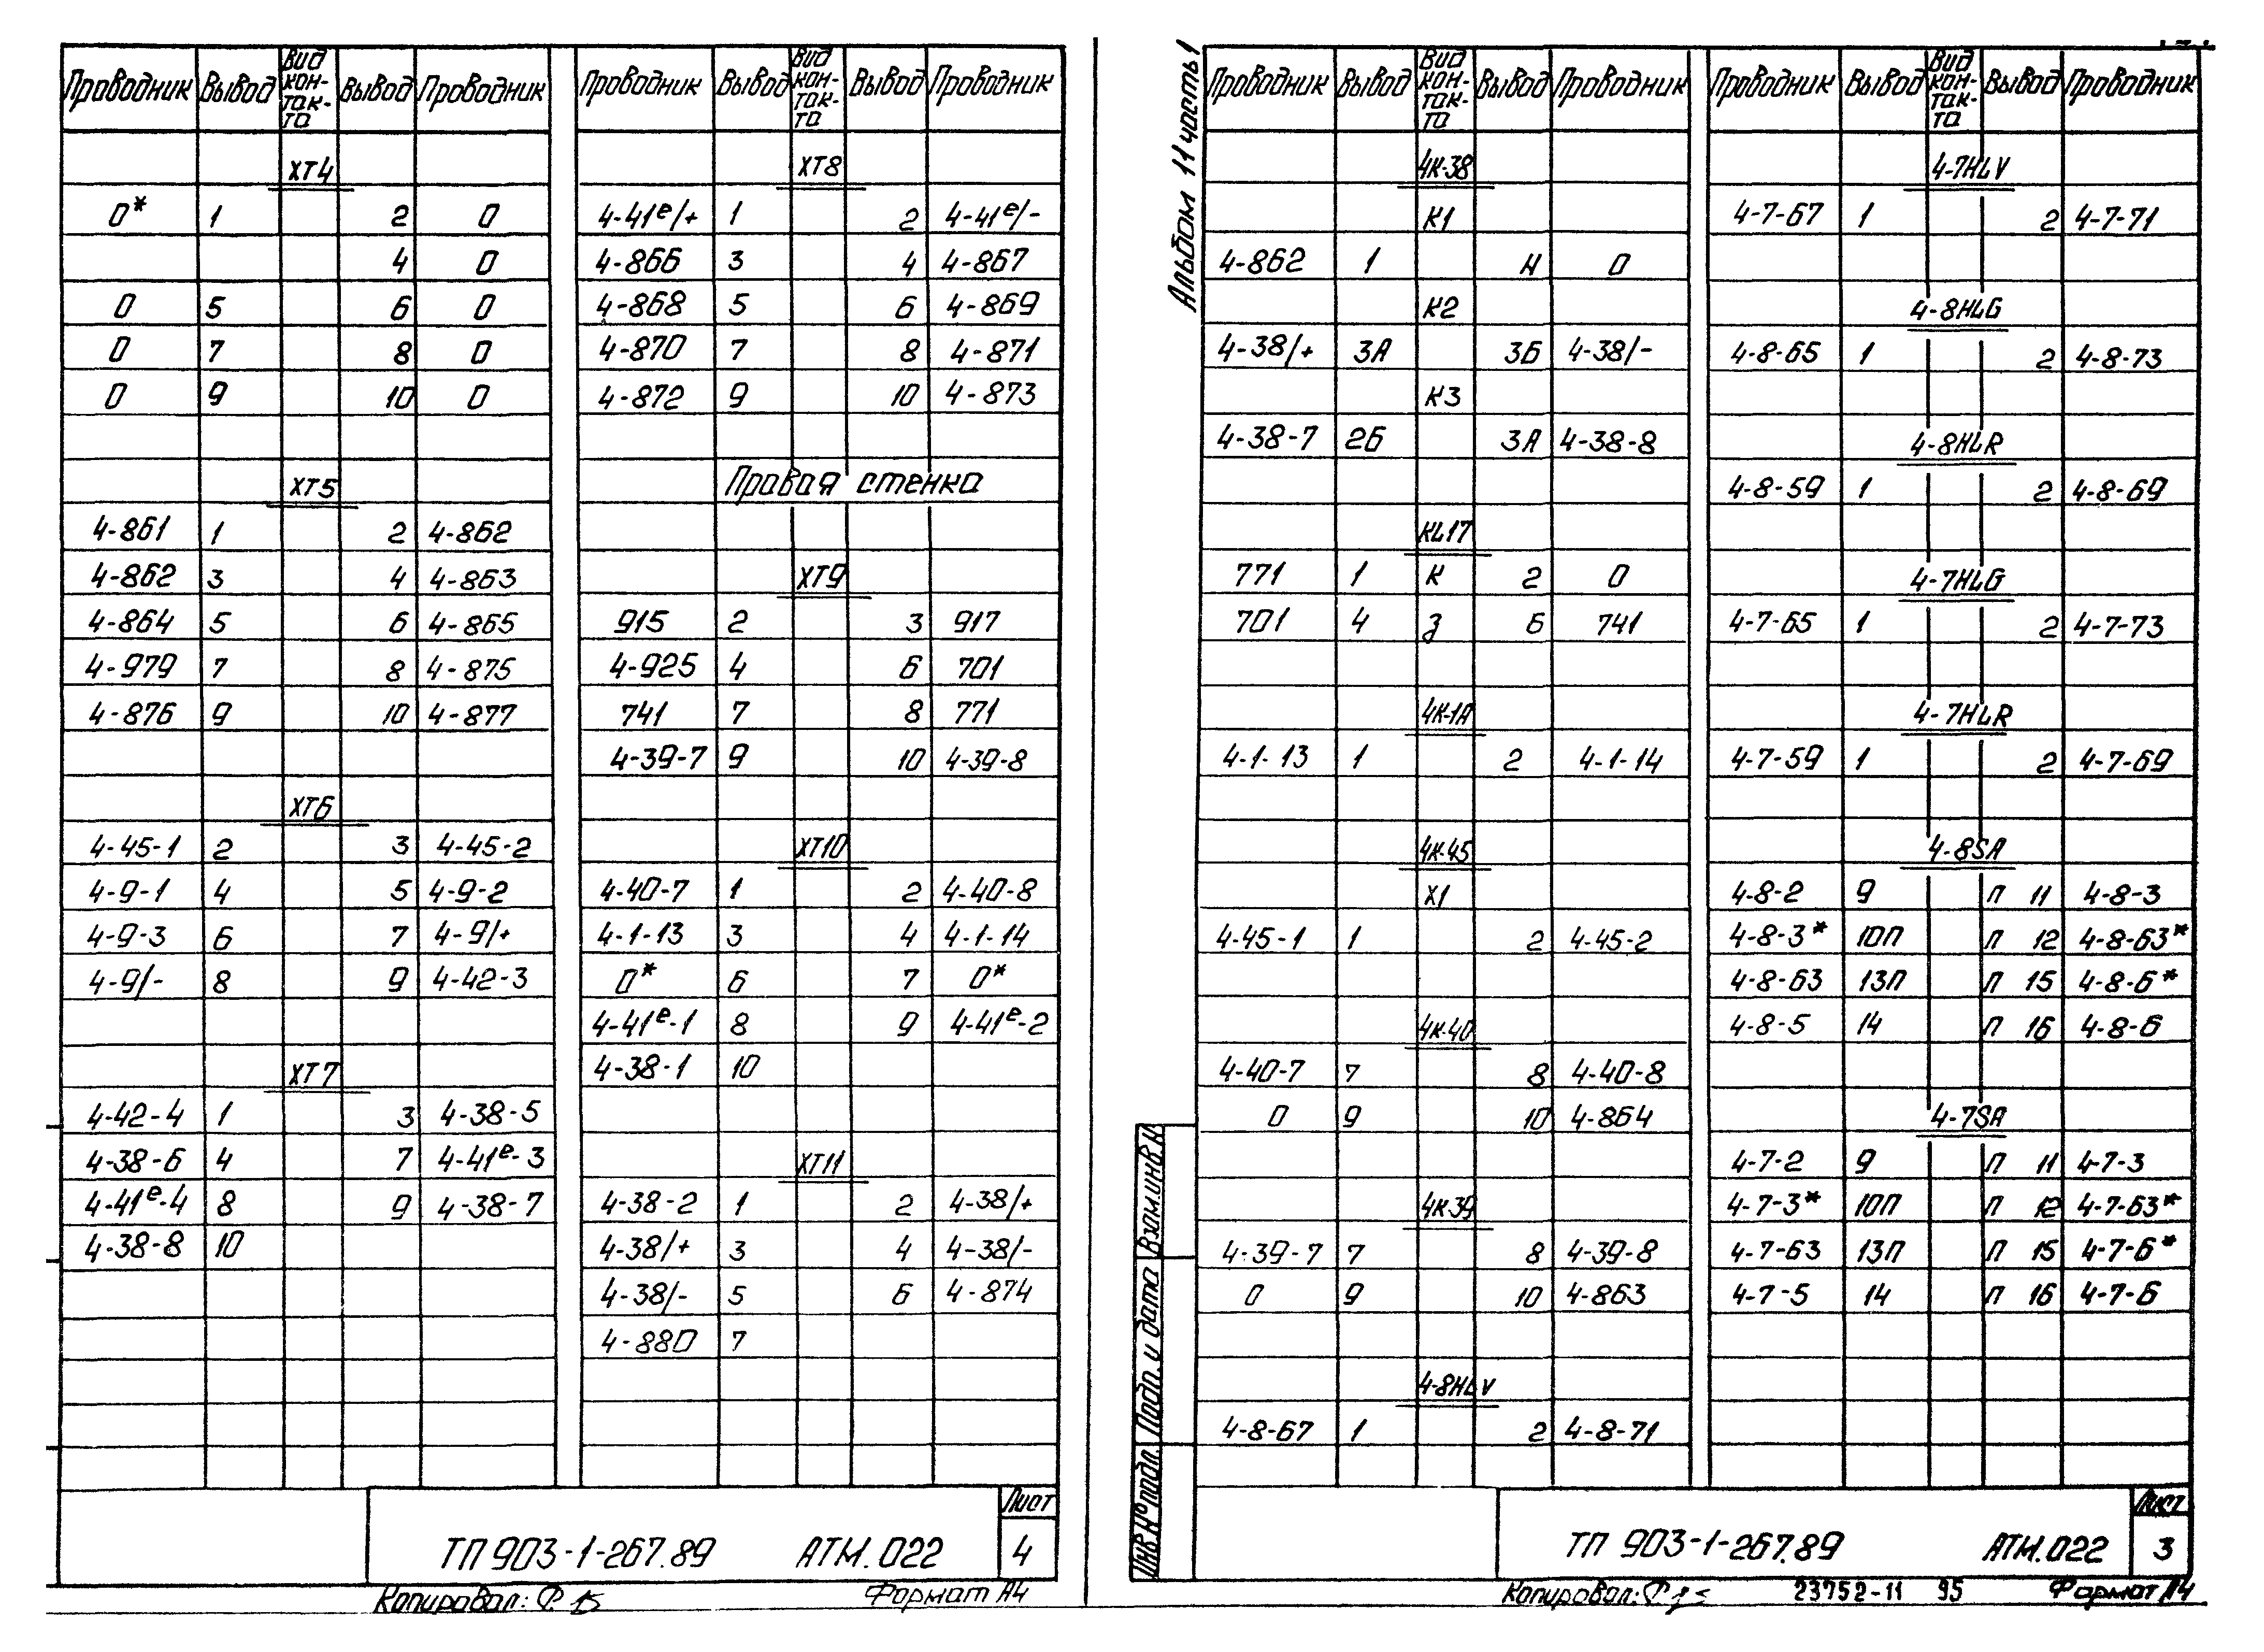 Проводник Вывод Вид контакта Вывод Проводник
ХТ4
0* 1 2 0
4 0
0 5 6 0
0 7 8 0
0 9 10 0
ХТ5
4-861 1 2 4-862
4-862 3 4 4-863
4-864 5 6 4-865
4-979 7 8 4-875
4-876 9 10 4-877
ХТ6
4-45-1 2 3 4-45-2
4-9-1 4 5 4-9-2
4-9-3 6 7 4-9/+
4-9/- 8 9 4-42-3
ХТ7
4-42-4 1 3 4-38-5
4-38-6 4 7 4-41е-3
4-41е-4 8 9 4-38-7
4-38-8 10
Проводник Вывод Вид контакта Вывод Проводник
ХТ8
4-41е/+ 1 2 4-41е/-
4-866 3 4 4-867
4-868 5 6 4-869
4-870 7 8 4-871
4-872 9 10 4-873
Правая стенка
ХТ9
915 2 3 917
4-925 4 6 701
741 7 8 771
4-39-7 9 10 4-39-8
ХТ10
4-40-7 1 2 4-40-8
4-1-13 3 4 4-1-14
0* 6 7 0*
4-41е-1 8 9 4-41е-2
4-38-1 10
ХТ11
4-38-2 1 2 4-38/+
4-38/+ 3 4 4-38/-
4-38/- 5 6 4-874
4-880 7
ТП 903-1-267.89 АТМ.022
Лист
4
Копировал:
Формат А4
Альбом 11 часть 1
Проводник Вывод Вид контакта Вывод Проводник
4К-38
К1
4-862 1 Н 0
К2
4-38/+ 3А 3Б 4-38/-
К3
4-38-7 2Б 3А 4-38-8
КL17
771 1 К 2 0
701 4 З 6 741
4К-1А
4-1-13 1 2 4-1-14
4К-45
Х1
4-45-1 1 2 4-45-2
4К-40
4-40-7 7 8 4-40-8
0 9 10 4-864
4К-39
4-39-7 7 8 4-39-8
0 9 10 4-863
4-8HLV
4-8-67 1 2 4-8-71
Проводник Вывод Вид контакта Вывод Проводник
4-7HLV
4-7-67 1 2 4-7-71
4-8HLG
4-8-65 1 2 4-8-73
4-8HLR
4-8-59 1 2 4-8-69
4-7HLG
4-7-65 1 2 4-7-73
4-7HLR
4-7-59 1 2 4-7-69
4-8SA
4-8-2 9 П 11 4-8-3
4-8-3* 10П П 12 4-8-63*
4-8-63 13П П 15 4-8-6*
4-8-5 14 П 16 4-8-6
4-7SA
4-7-2 9 П 11 4-7-3
4-7-3* 10П П 12 4-7-63*
4-7-63 13П П 15 4-7-6*
4-7-5 14 П 16 4-7-6
Взам.инв.н
Подп. и дата
Инв.N° подл.
ТП 903-1-267.89 АТМ.022
Лист
3
Копировал:
23752-11 95
Формат А4